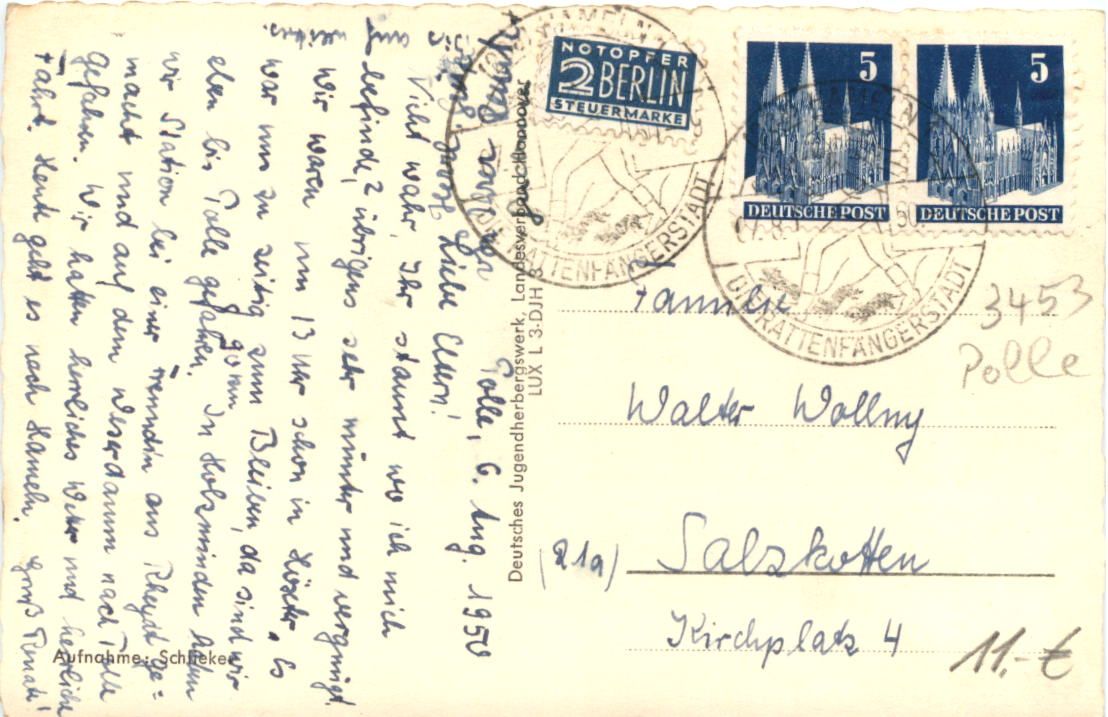 Polle, 6. Aug. 1950
Liebe Eltern!
Nicht wahr, Ihr staunt wo ich mich
befinde? übrigens sehr munter und vergnügt.
Wir waren um 13 Uhr schon in Höxter. Es
war uns zu zeitig zum Bleiben, da sind wir
eben bis Polle gefahren. In Holzminden haben
wir Station bei einer Freundin aus Rheydt ge=
macht und auf dem Weserdamm nach Polle
gefahren. Wir hatten herrliches Wetter und herrliche
Fahrt. Heute geht es nach Hameln. Gruß Renate!
Aufnahme: Schlieker
Deutsches Jugendherbergswerk, Landesverband Hannover
LUX L 3-DJH 8
HAMELN
RATTENFÄNGERSTADT
NOTOPFER
2 BERLIN
STEUERMARKE
5
DEUTSCHE POST
5
DEUTSCHE POST
HAMELN
DIE RATTENFÄNGERSTADT
3453
Polle
Familie
Walter Wollny
(21a) Salzkotten
Kirchplatz 4
11.-€